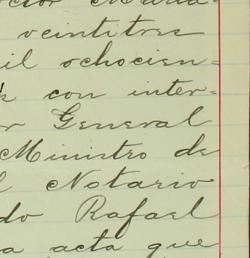 veintitres
il ochocien=
s con inter-
r General
Ministro de
l Notario
do Rafael
a acta que